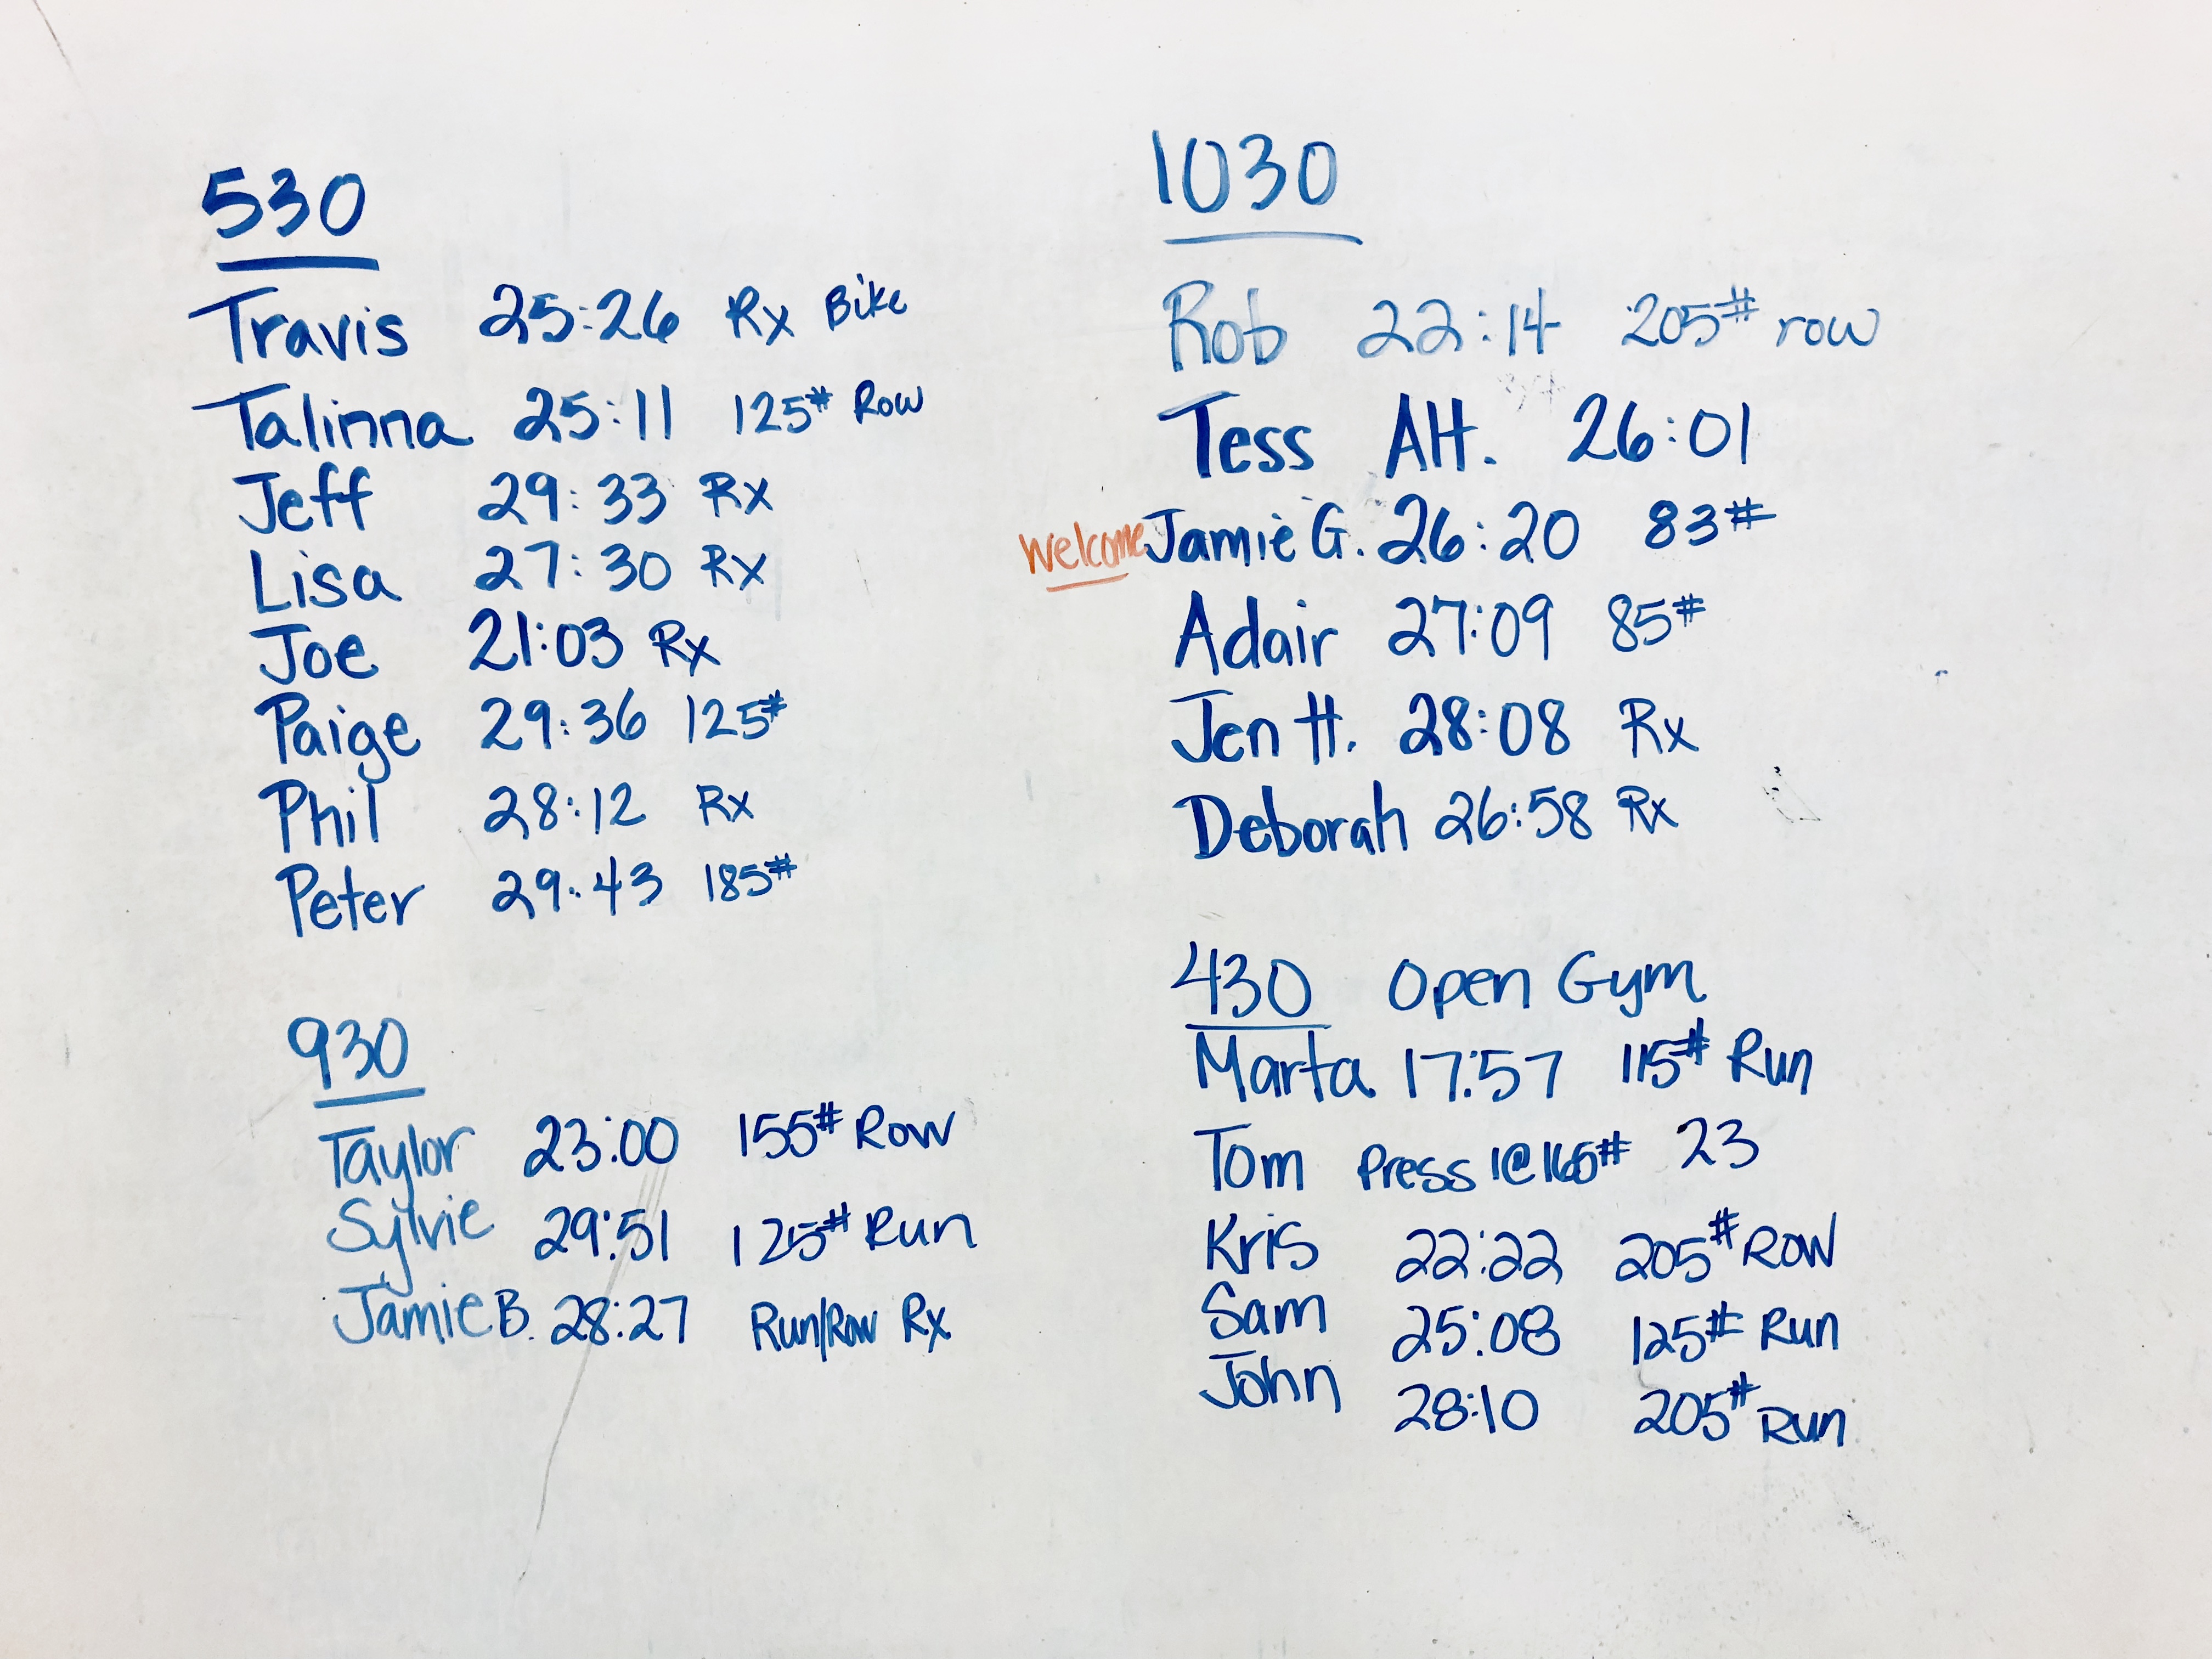 530
Travis 25:26 Rx Bike
Talinna 25:11 125# Row
Jeff 29:33 Rx
Lisa 27:30 Rx
Joe 21:03 Rx
Paige 29:36 125#
Phil 28:12 Rx
Peter 29:43 185#
930
Taylor 23:00 155# Row
Sylvie 29:51 125# Run
Jamie B. 28:27 Run/Row Rx
1030
Rob 22:14 205# row
Tess Alt. 26:01
Welcome Jamie G. 26:20 83#
Adair 27:09 85#
Jen H. 28:08 Rx
Deborah 26:58 Rx
430 Open Gym
Marta 17:57 115# Run
Tom Press 1@165# 23
Kris 22:22 205# Row
Sam 25:08 125# Run
John 28:10 205# Run